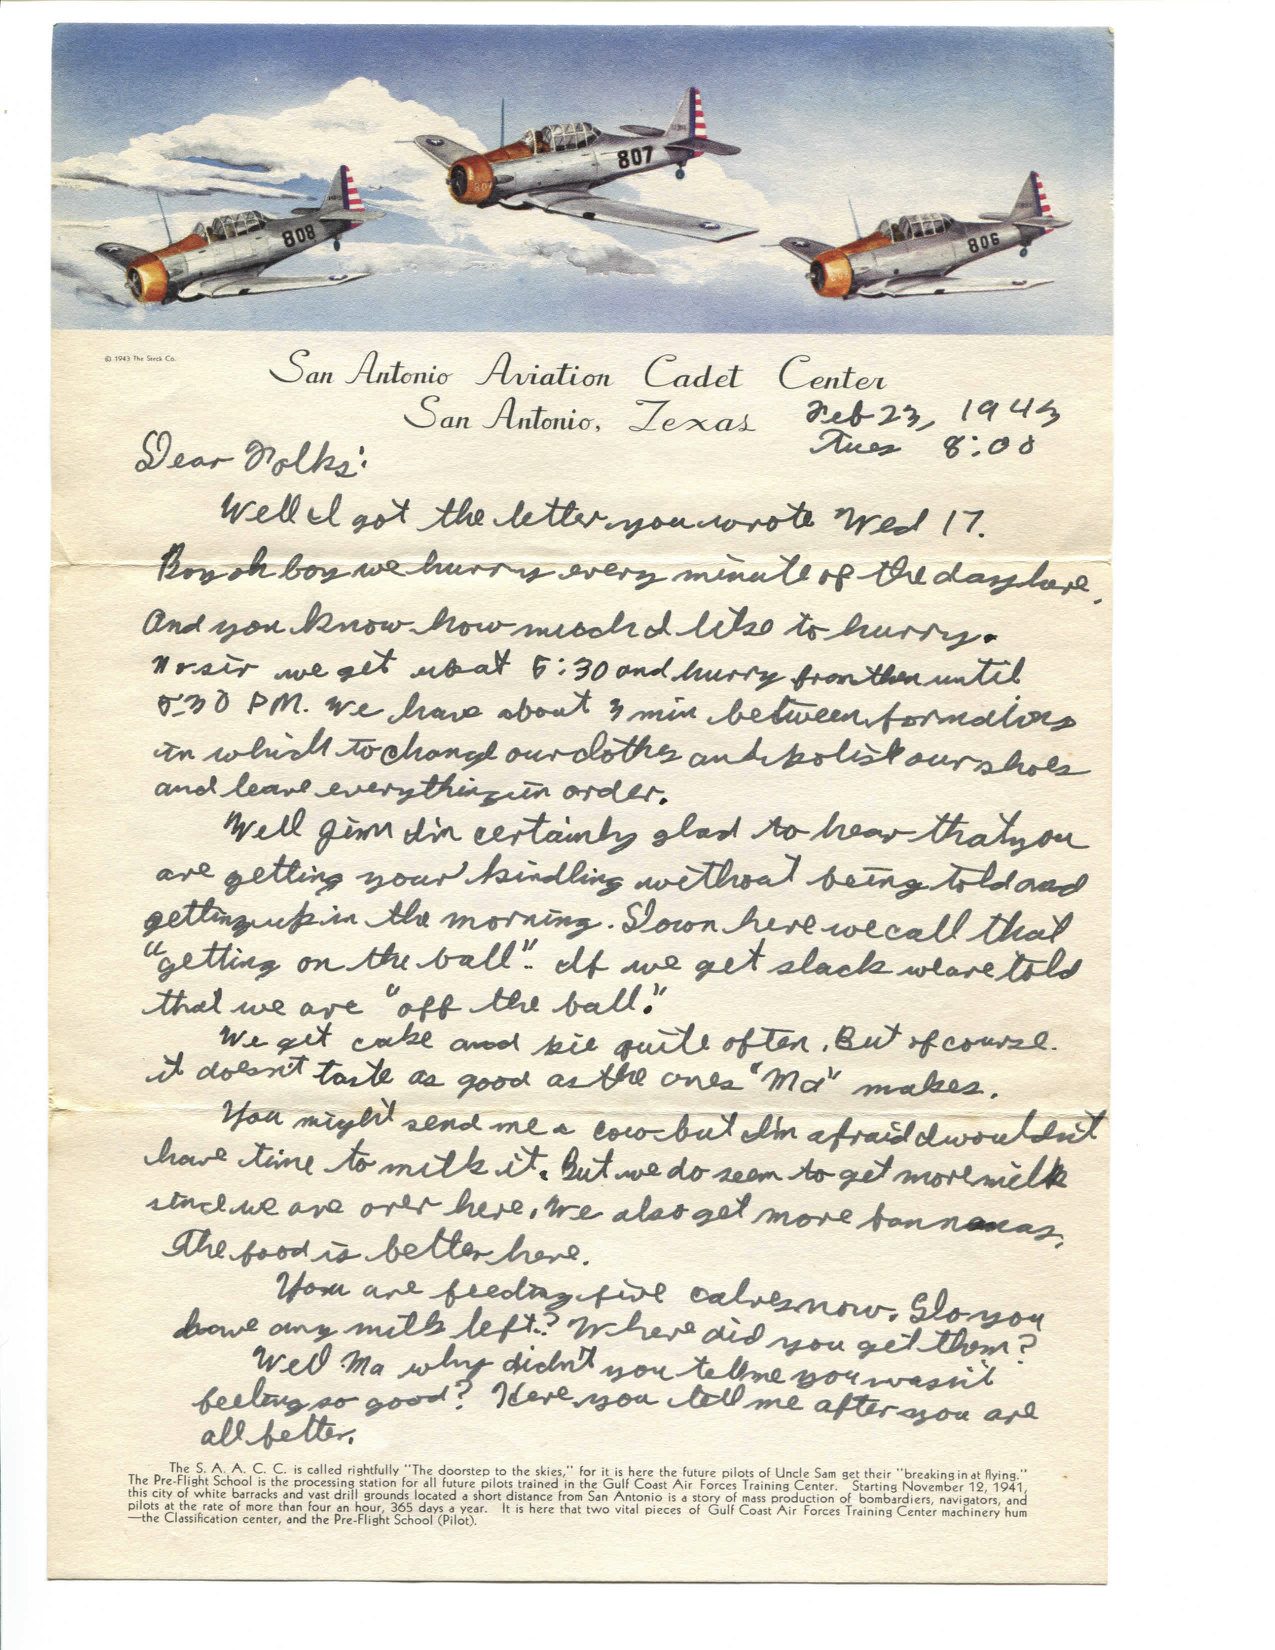 808
807
806
© 1943 The Steck Co.
San Antonio Aviation Cadet Center
San Antonio, Texas
Feb 23, 1943
Tues 8:00
Dear Folks:
Well I got the letter you wrote Wed 17.
Boy oh boy we hurry every minute of the day here.
And you know how much I like to hurry.
No sir we get up at 5:30 and hurry from then until
5:30 PM. We have about 3 min between formations
in which to change our clothes and polish our shoes
and leave everything in order.
Well Jim I'm certainly glad to hear that you
are getting your kindling without being told and
getting up in the morning. Down here we call that
"getting on the ball". If we get slack we are told
that we are "off the ball."
We get cake and pie quite often. But of course.
it doesn't taste as good as the ones "Ma" makes.
You might send me a cow but I'm afraid I wouldn't
have time to milk it. But we do seem to get more milk
since we are over here. We also get more bannanas.
The food is better here.
You are feeding five calves now. Do you
have any milk left? Where did you get them?
Well Ma why didn't you tell me you wasn't
feeling so good? Here you tell me after you are
all better.
The S. A. A. C. C. is called rightfully "The doorstep to the skies," for it is here the future pilots of Uncle Sam get their "breaking in at flying."
The Pre-Flight School is the processing station for all future pilots trained in the Gulf Coast Air Forces Training Center. Starting November 12, 1941,
this city of white barracks and vast drill grounds located a short distance from San Antonio is a story of mass production of bombardiers, navigators, and
pilots at the rate of more than four an hour, 365 days a year. It is here that two vital pieces of Gulf Coast Air Forces Training Center machinery hum
—the Classification center, and the Pre-Flight School (Pilot).